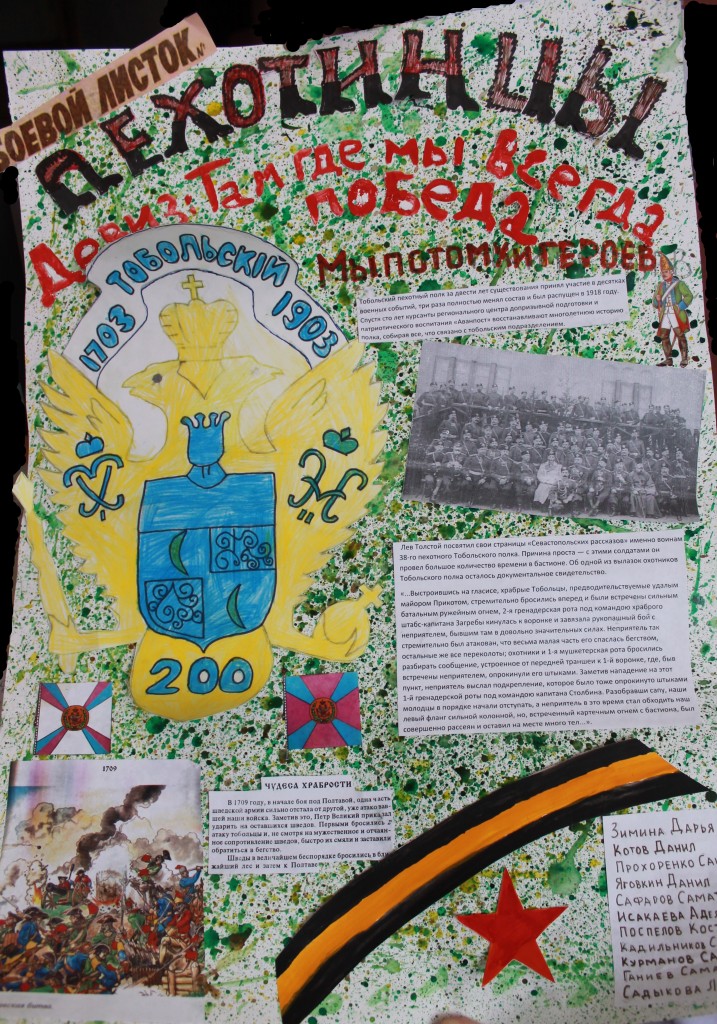 БОЕВОЙ ЛИСТОК №
ПЕХОТИНЦЫ
Девиз: Там где мы всегда
победа
Мы потомки героев
ТОБОЛЬСКIЙ
1703 1903
200
Тобольский пехотный полк за двести лет существования принял участие в десятках
военных событий, три раза полностью менял состав и был распущен в 1918 году.
Спустя сто лет курсанты регионального центра допризывной подготовки и
патриотического воспитания «Аванпост» восстанавливают многолетнюю историю
полка, собирая все, что связано с тобольским подразделением.
Лев Толстой посвятил свои страницы «Севастопольских рассказов» именно воинам
38-го пехотного Тобольского полка. Причина проста — с этими солдатами он
провел большое количество времени в бастионе. Об одной из вылазок охотников
Тобольского полка осталось документальное свидетельство.
«...Выстроившись на гласисе, храбрые Тобольцы, предводительствуемые удалым
майором Прикотом, стремительно бросились вперед и были встречены сильным
батальным ружейным огнем, 2-я гренадерская рота под командою храброго
штабс-капитана Загребы кинулась к воронке и завязала рукопашный бой с
неприятелем, бывшим там в довольно значительных силах. Неприятель так
стремительно был атакован, что весьма малая часть его спаслась бегством,
остальные же все переколоты; охотники и 1-я мушкетерская рота бросились
разбирать сообщение, устроенное от передней траншеи к 1-й воронке, где, быв
встречены неприятелем, опрокинули его штыками. Заметив нападение на этот
пункт, неприятель выслал подкрепление, которое было тоже опрокинуто штыками
1-й гренадерской роты под командою капитана Столбина. Разобравши сапу, наши
молодцы в порядке начали отступать, а неприятель в это время стал обходить наш
левый фланг сильной колонной, но, встреченный картечным огнем с бастиона, был
совершенно рассеян и оставил на месте много тел...».
1709
ЧУДЕСА ХРАБРОСТИ
В 1709 году, в начале боя под Полтавой, одна часть
шведской армии сильно отстала от другой, уже атаковав-
шей наши войска. Заметив это, Петр Великий приказал
ударить на оставшихся шведов. Первыми бросились в
атаку тобольцы и, не смотря на мужественное и отчаян-
ное сопротивление шведов, быстро их смяли и заставили
обратиться в бегство.
Шведы в величайшем беспорядке бросились в бли-
жайший лес и затем к Полтаве
битва
Зимина Дарья
Котов Данил
Прохоренко
Яговкин Данил
Сафаров
Исакаева
Поспелов
Кадильников
Курманов
Ганиев
Садыкова